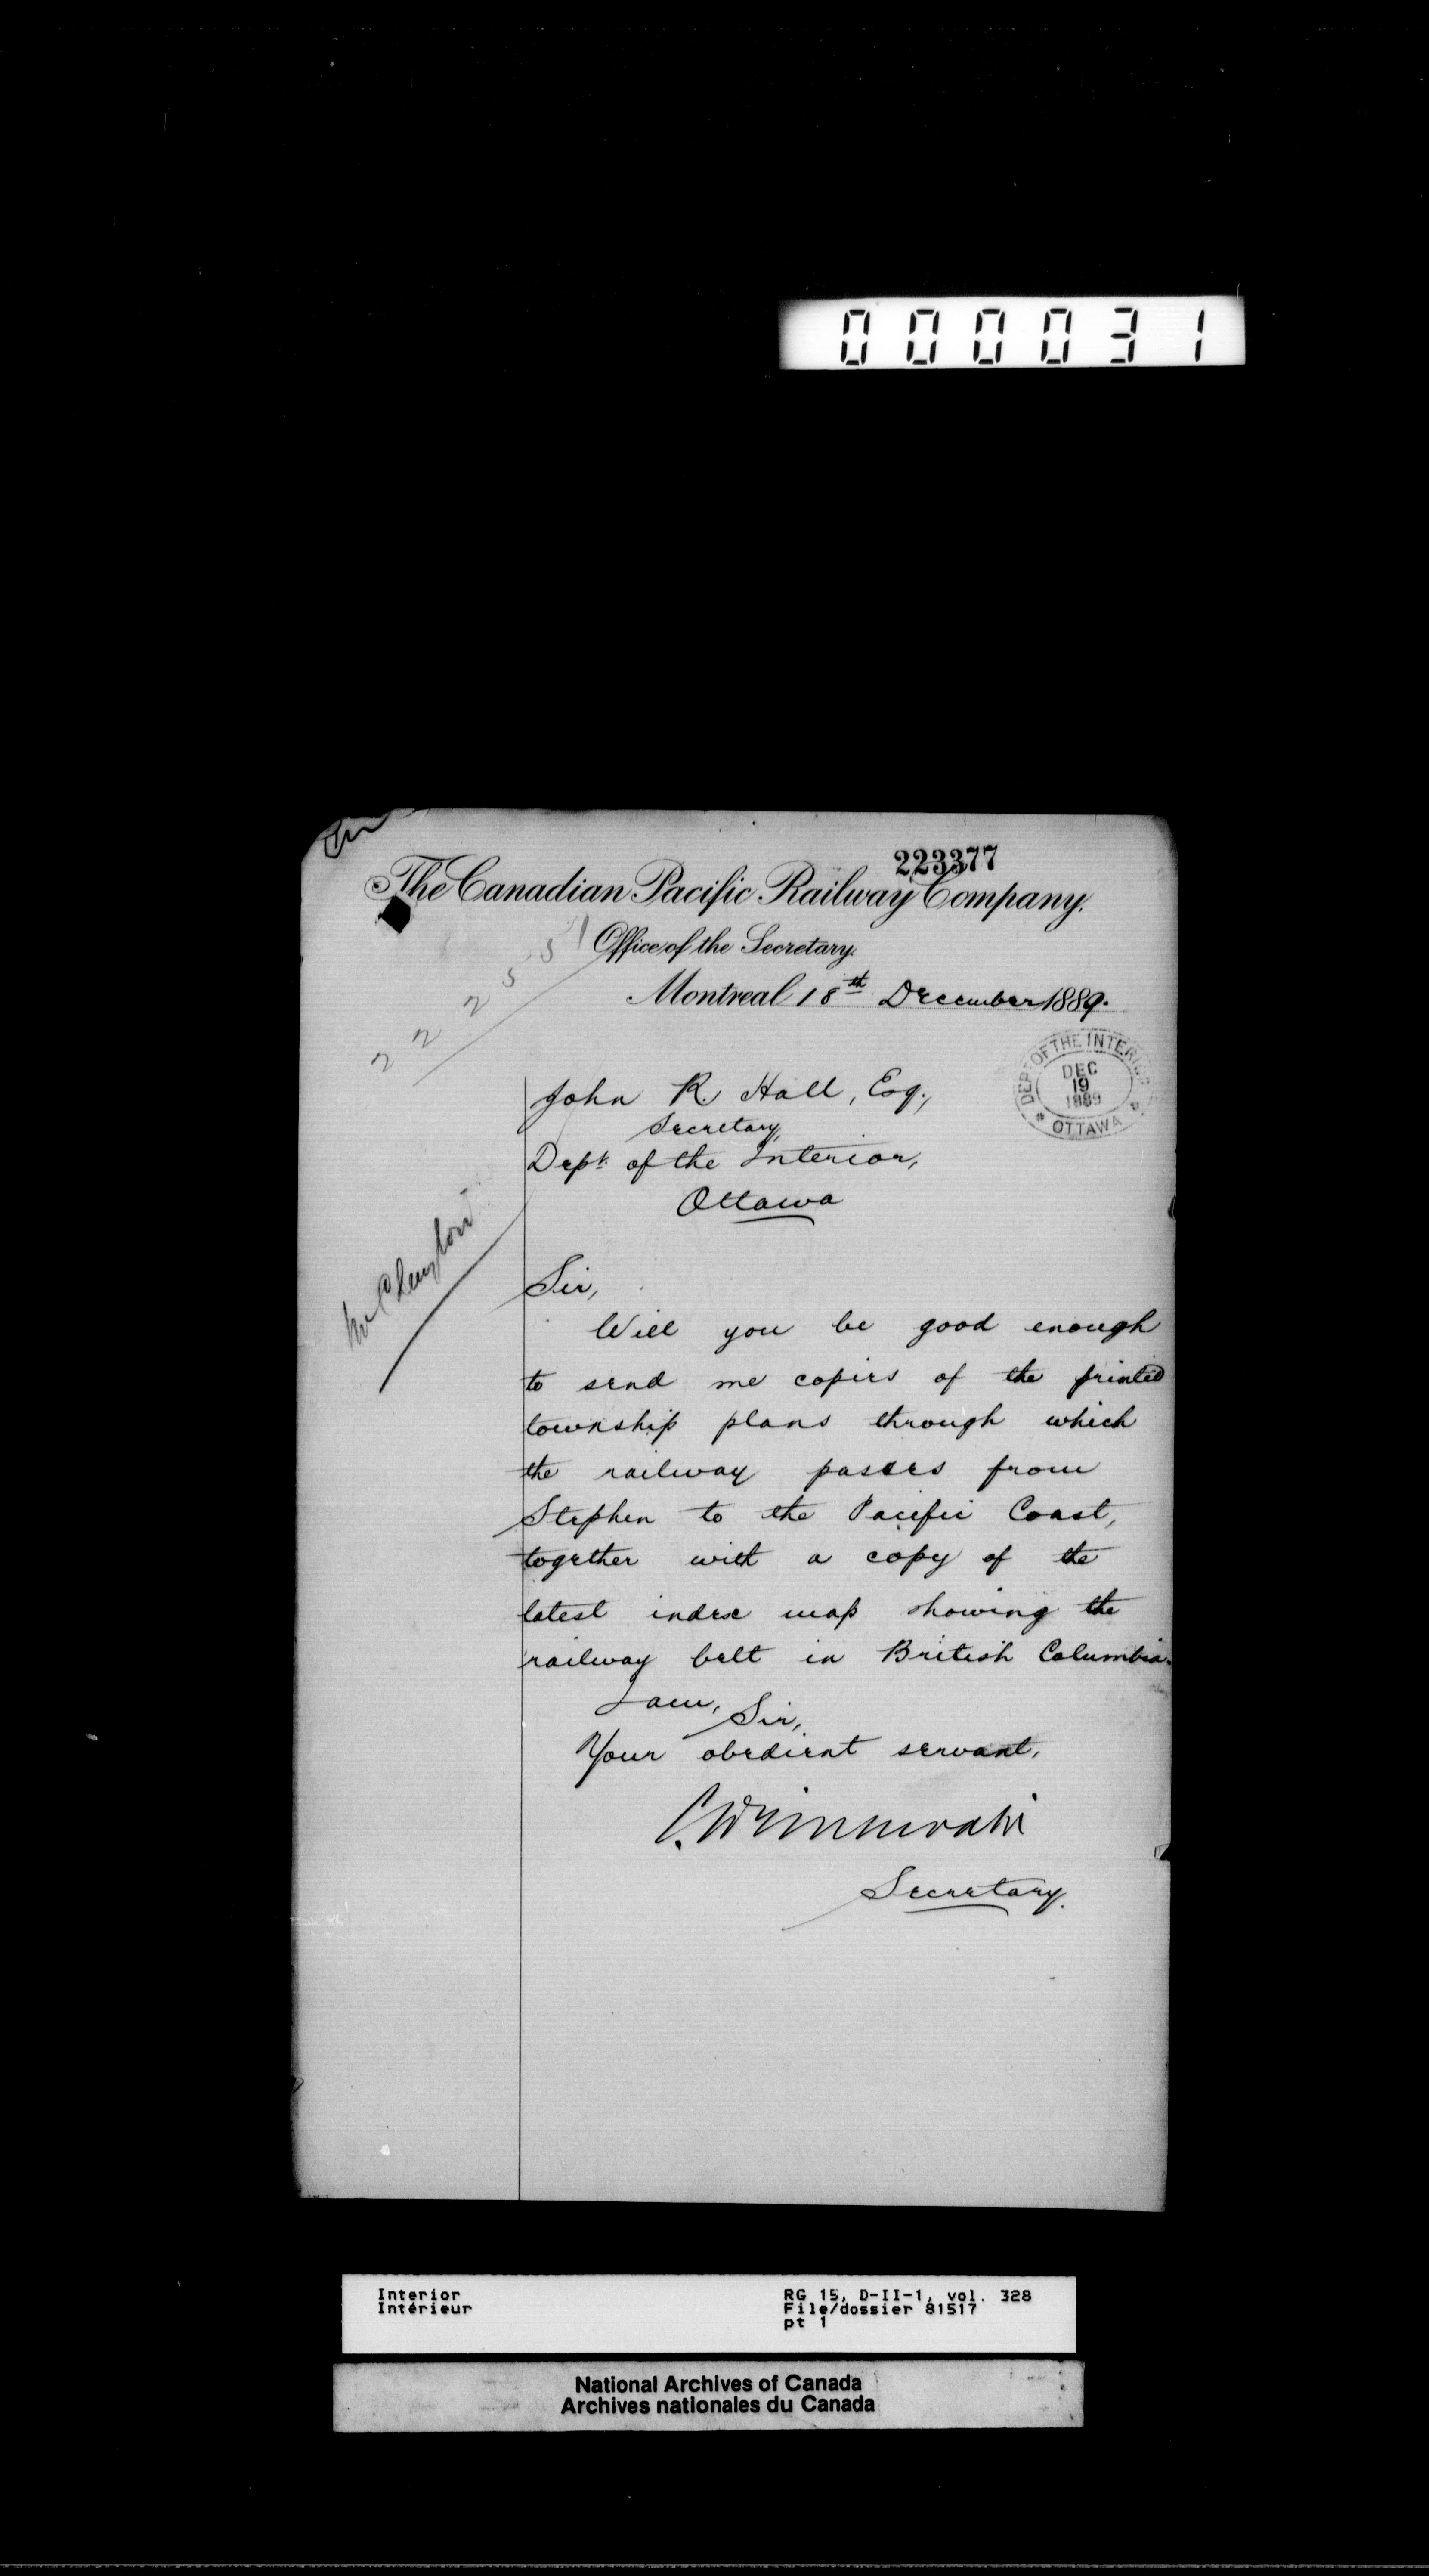 000031
223377
The Canadian Pacific Railway Company.
Office of the Secretary.
Montreal 18th December 1889.
222551
DEPT OF THE INTERIOR
DEC
19
1889
* OTTAWA *
John R. Hall, Esq.,
Secretary,
Dept. of the Interior,
Ottawa
Sir,
Will you be good enough
to send me copies of the printed
township plans through which
the railway passes from
Stephen to the Pacific Coast,
together with a copy of the
latest index map showing the
railway belt in British Columbia.
I am, Sir,
Your obedient servant,
C. Drinkwater
Secretary.
Interior
Intérieur
RG 15, D-II-1, vol. 328
File/dossier 81517
pt 1
National Archives of Canada
Archives nationales du Canada